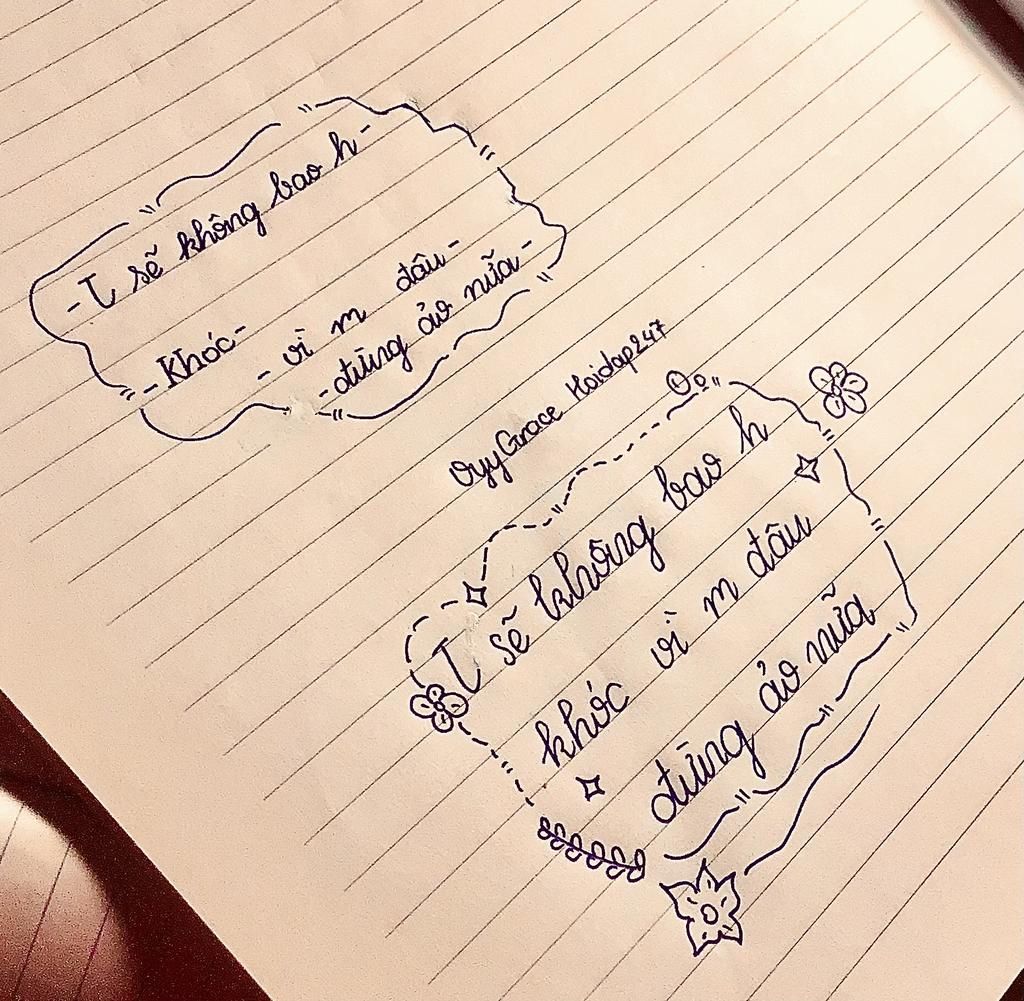 - T sẽ không bao h -
- Khóc -
- vì m đâu -
- đừng ảo nữa -
Hoidap247
T sẽ không bao h
khóc vì m đâu
đừng ảo nữa